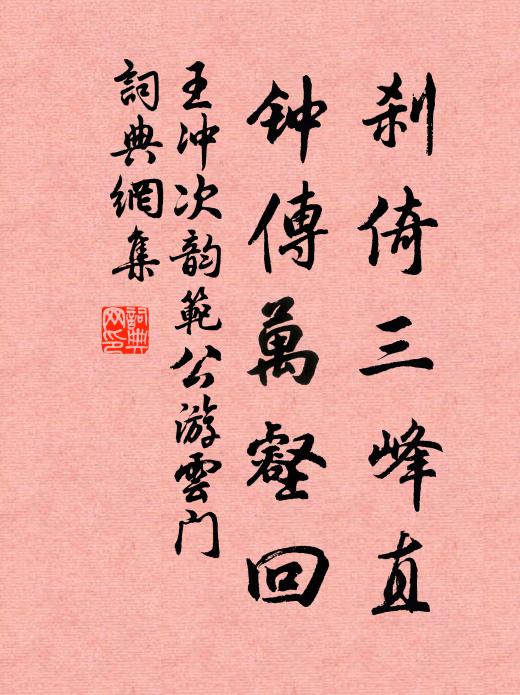 刹倚三峰直
钟傳萬壑回
王冲次韵範公游雲门
詞典網集
詞典网印